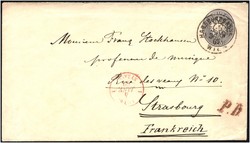 Monsieur Franz Hochhausen
professeur de musique
Rue des veaux Nº 10.
Strasbourg
Frankreich
P.D